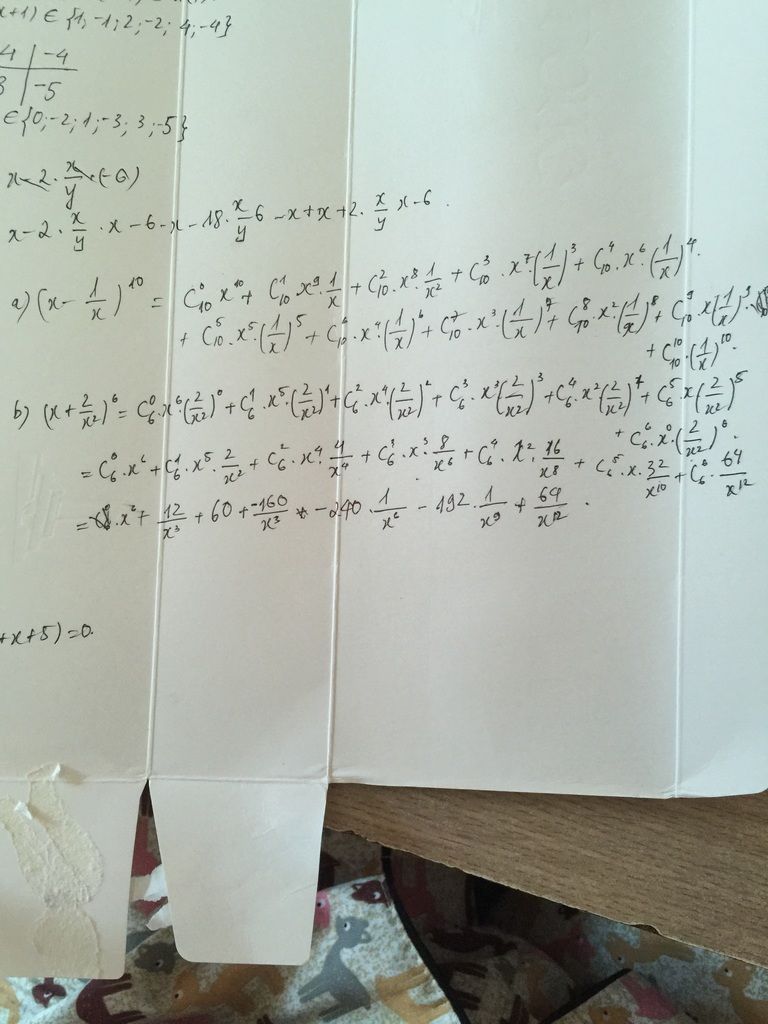 x+1) ∈ {1; -1; 2; -2; 4; -4}
4 | -4
3 | -5
∈ {0; -2; 1; -3; 3; -5}
x-2 · x/y · (-6)
x-2 · x/y · x - 6 - x - 18 · x/y 6 - x + x + 2 · x/y x - 6 .
a) (x - 1/x)^10 = C_10^0 x^10 + C_10^1 x^9 · 1/x + C_10^2 · x^8 · 1/x^2 + C_10^3 · x^7 · (1/x)^3 + C_10^4 · x^6 · (1/x)^4
+ C_10^5 · x^5 · (1/x)^5 + C_10^6 · x^4 · (1/x)^6 + C_10^7 · x^3 · (1/x)^7 + C_10^8 · x^2 (1/x)^8 + C_10^9 · x (1/x)^9
+ C_10^10 · (1/x)^10 .
b) (x + 2/x^2)^6 = C_6^0 · x^6 · (2/x^2)^0 + C_6^1 · x^5 · (2/x^2)^1 + C_6^2 · x^4 (2/x^2)^2 + C_6^3 · x^3 (2/x^2)^3 + C_6^4 · x^2 (2/x^2)^4 + C_6^5 · x (2/x^2)^5
+ C_6^6 · x^0 · (2/x^2)^6 .
= C_6^0 · x^6 + C_6^1 · x^5 · 2/x^2 + C_6^2 · x^4 · 4/x^4 + C_6^3 · x^3 · 8/x^6 + C_6^4 · x^2 · 16/x^8 + C_6^5 · x · 32/x^10 + C_6^6 · 64/x^12
= x^6 + 12/x^3 + 60 + -160/x^3 - 240 · 1/x^6 - 192 · 1/x^9 + 64/x^12 .
+x+5) = 0.